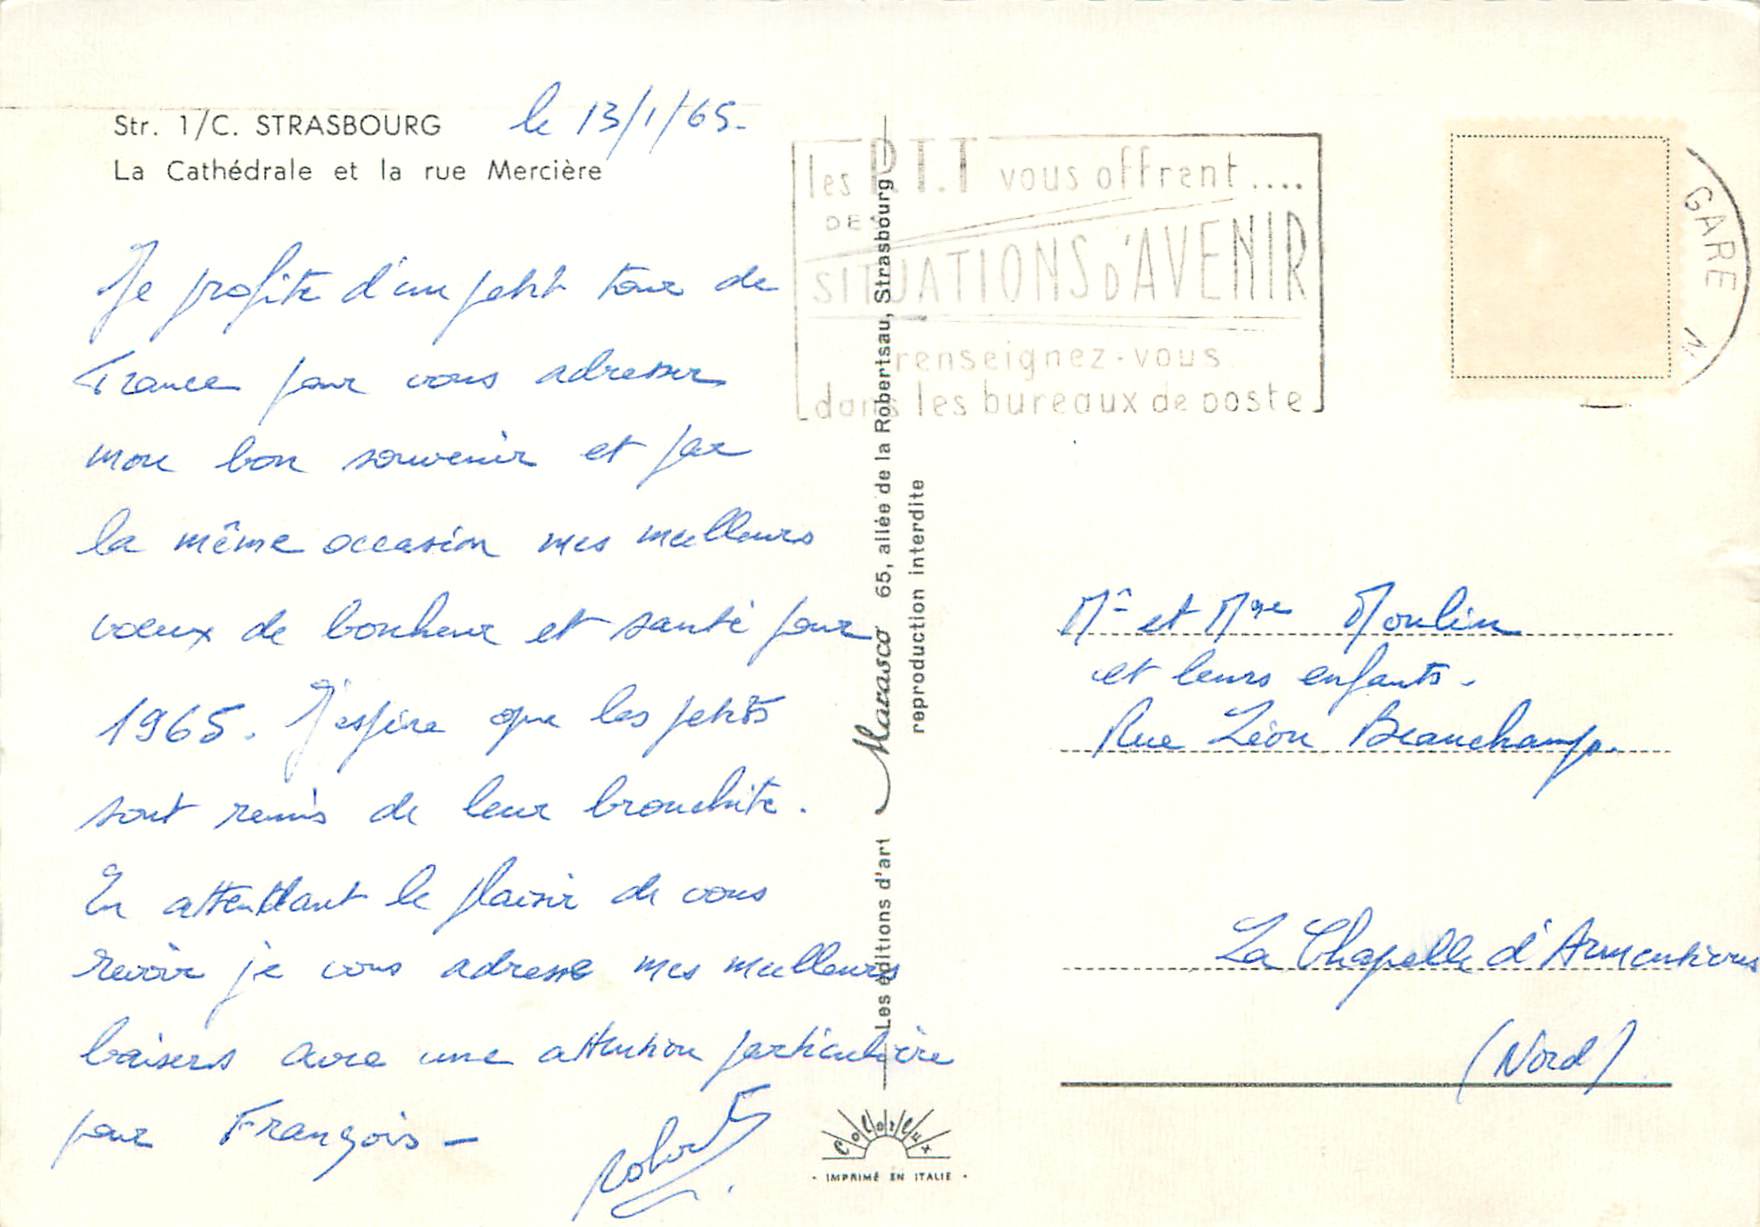 Str. 1/C. STRASBOURG
La Cathédrale et la rue Mercière
le 13/1/65-
Je profite d'un petit tour de
France pour vous adresser
mon bon souvenir et par
la même occasion mes meilleurs
voeux de bonheur et santé pour
1965. J'espère que les petits
sont remis de leur bronchite.
En attendant le plaisir de vous
revoir je vous adresse mes meilleurs
baisers avec une attention particulière
pour François -
Robert
les P.T.T vous offrent....
DES
SITUATIONS D'AVENIR
renseignez-vous
dans les bureaux de poste
GARE
Les éditions d'art Marasco 65, allée de la Robertsau, Strasbourg
reproduction interdite
Colorlux
· IMPRIMÉ EN ITALIE ·
Mr et Mme Moulin
et leurs enfants.
Rue Léon Beauchamp.
La Chapelle d'Armentières
(Nord)